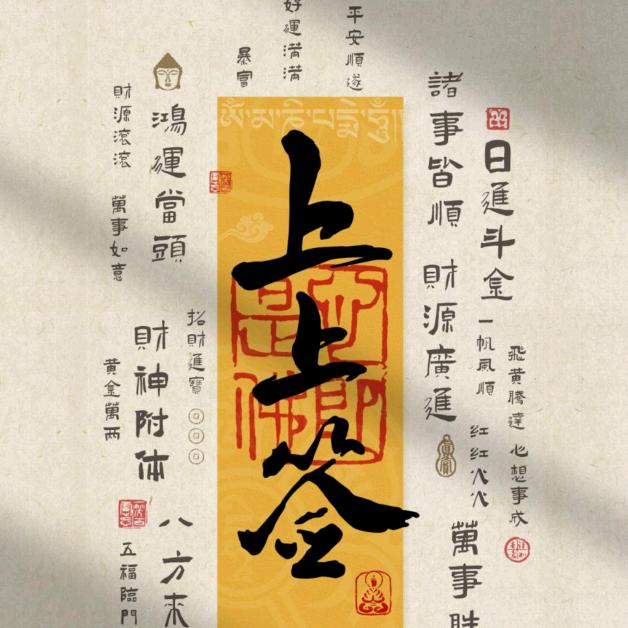 平安順遂
好運滿滿
暴富
諸事皆順
財源廣進
日進斗金
一帆風順
飛黃騰達
心想事成
紅紅火火
萬事勝
上上签
鴻運當頭
財源滾滾
萬事如意
招財進寶
財神附体
黄金萬两
八方来
五福臨門